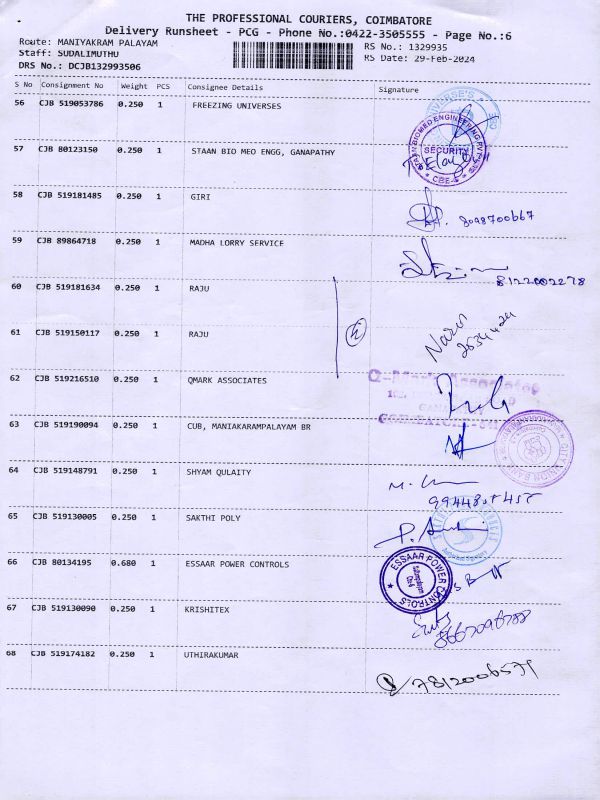 THE PROFESSIONAL COURIERS, COIMBATORE
Delivery Runsheet - PCG - Phone No.:0422-3505555 - Page No.:6
Route: MANIYAKRAM PALAYAM
Staff: SUDALIMUTHU
DRS No.: DCJB132993506
RS No.: 1329935
RS Date: 29-Feb-2024
S No Consignment No Weight PCS Consignee Details Signature
56 CJB 519053786 0.250 1 FREEZING UNIVERSES
57 CJB 80123150 0.250 1 STAAN BIO MEO ENGG, GANAPATHY
SECURITY
58 CJB 519181485 0.250 1 GIRI
8098700667
59 CJB 89864718 0.250 1 MADHA LORRY SERVICE
8122002278
60 CJB 519181634 0.250 1 RAJU
61 CJB 519150117 0.250 1 RAJU
62 CJB 519216510 0.250 1 QMARK ASSOCIATES
63 CJB 519190094 0.250 1 CUB, MANIAKARAMPALAYAM BR
CITY UNION BANK
64 CJB 519148791 0.250 1 SHYAM QULAITY
65 CJB 519130005 0.250 1 SAKTHI POLY
66 CJB 80134195 0.680 1 ESSAAR POWER CONTROLS
ESSAAR POWER CONTROLS
67 CJB 519130090 0.250 1 KRISHITEX
68 CJB 519174182 0.250 1 UTHIRAKUMAR